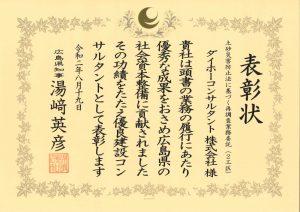 表彰状
土砂災害防止法に基づく再調査業務委託（２工区）
ダイホーコンサルタント株式会社 様
貴社は頭書の業務の履行にあたり
優秀な成果をおさめ広島県の
社会資本整備に貢献されました
その功績をたたえ優良建設コン
サルタントとして表彰します
令和二年八月十九日
広島県知事 湯﨑英彦